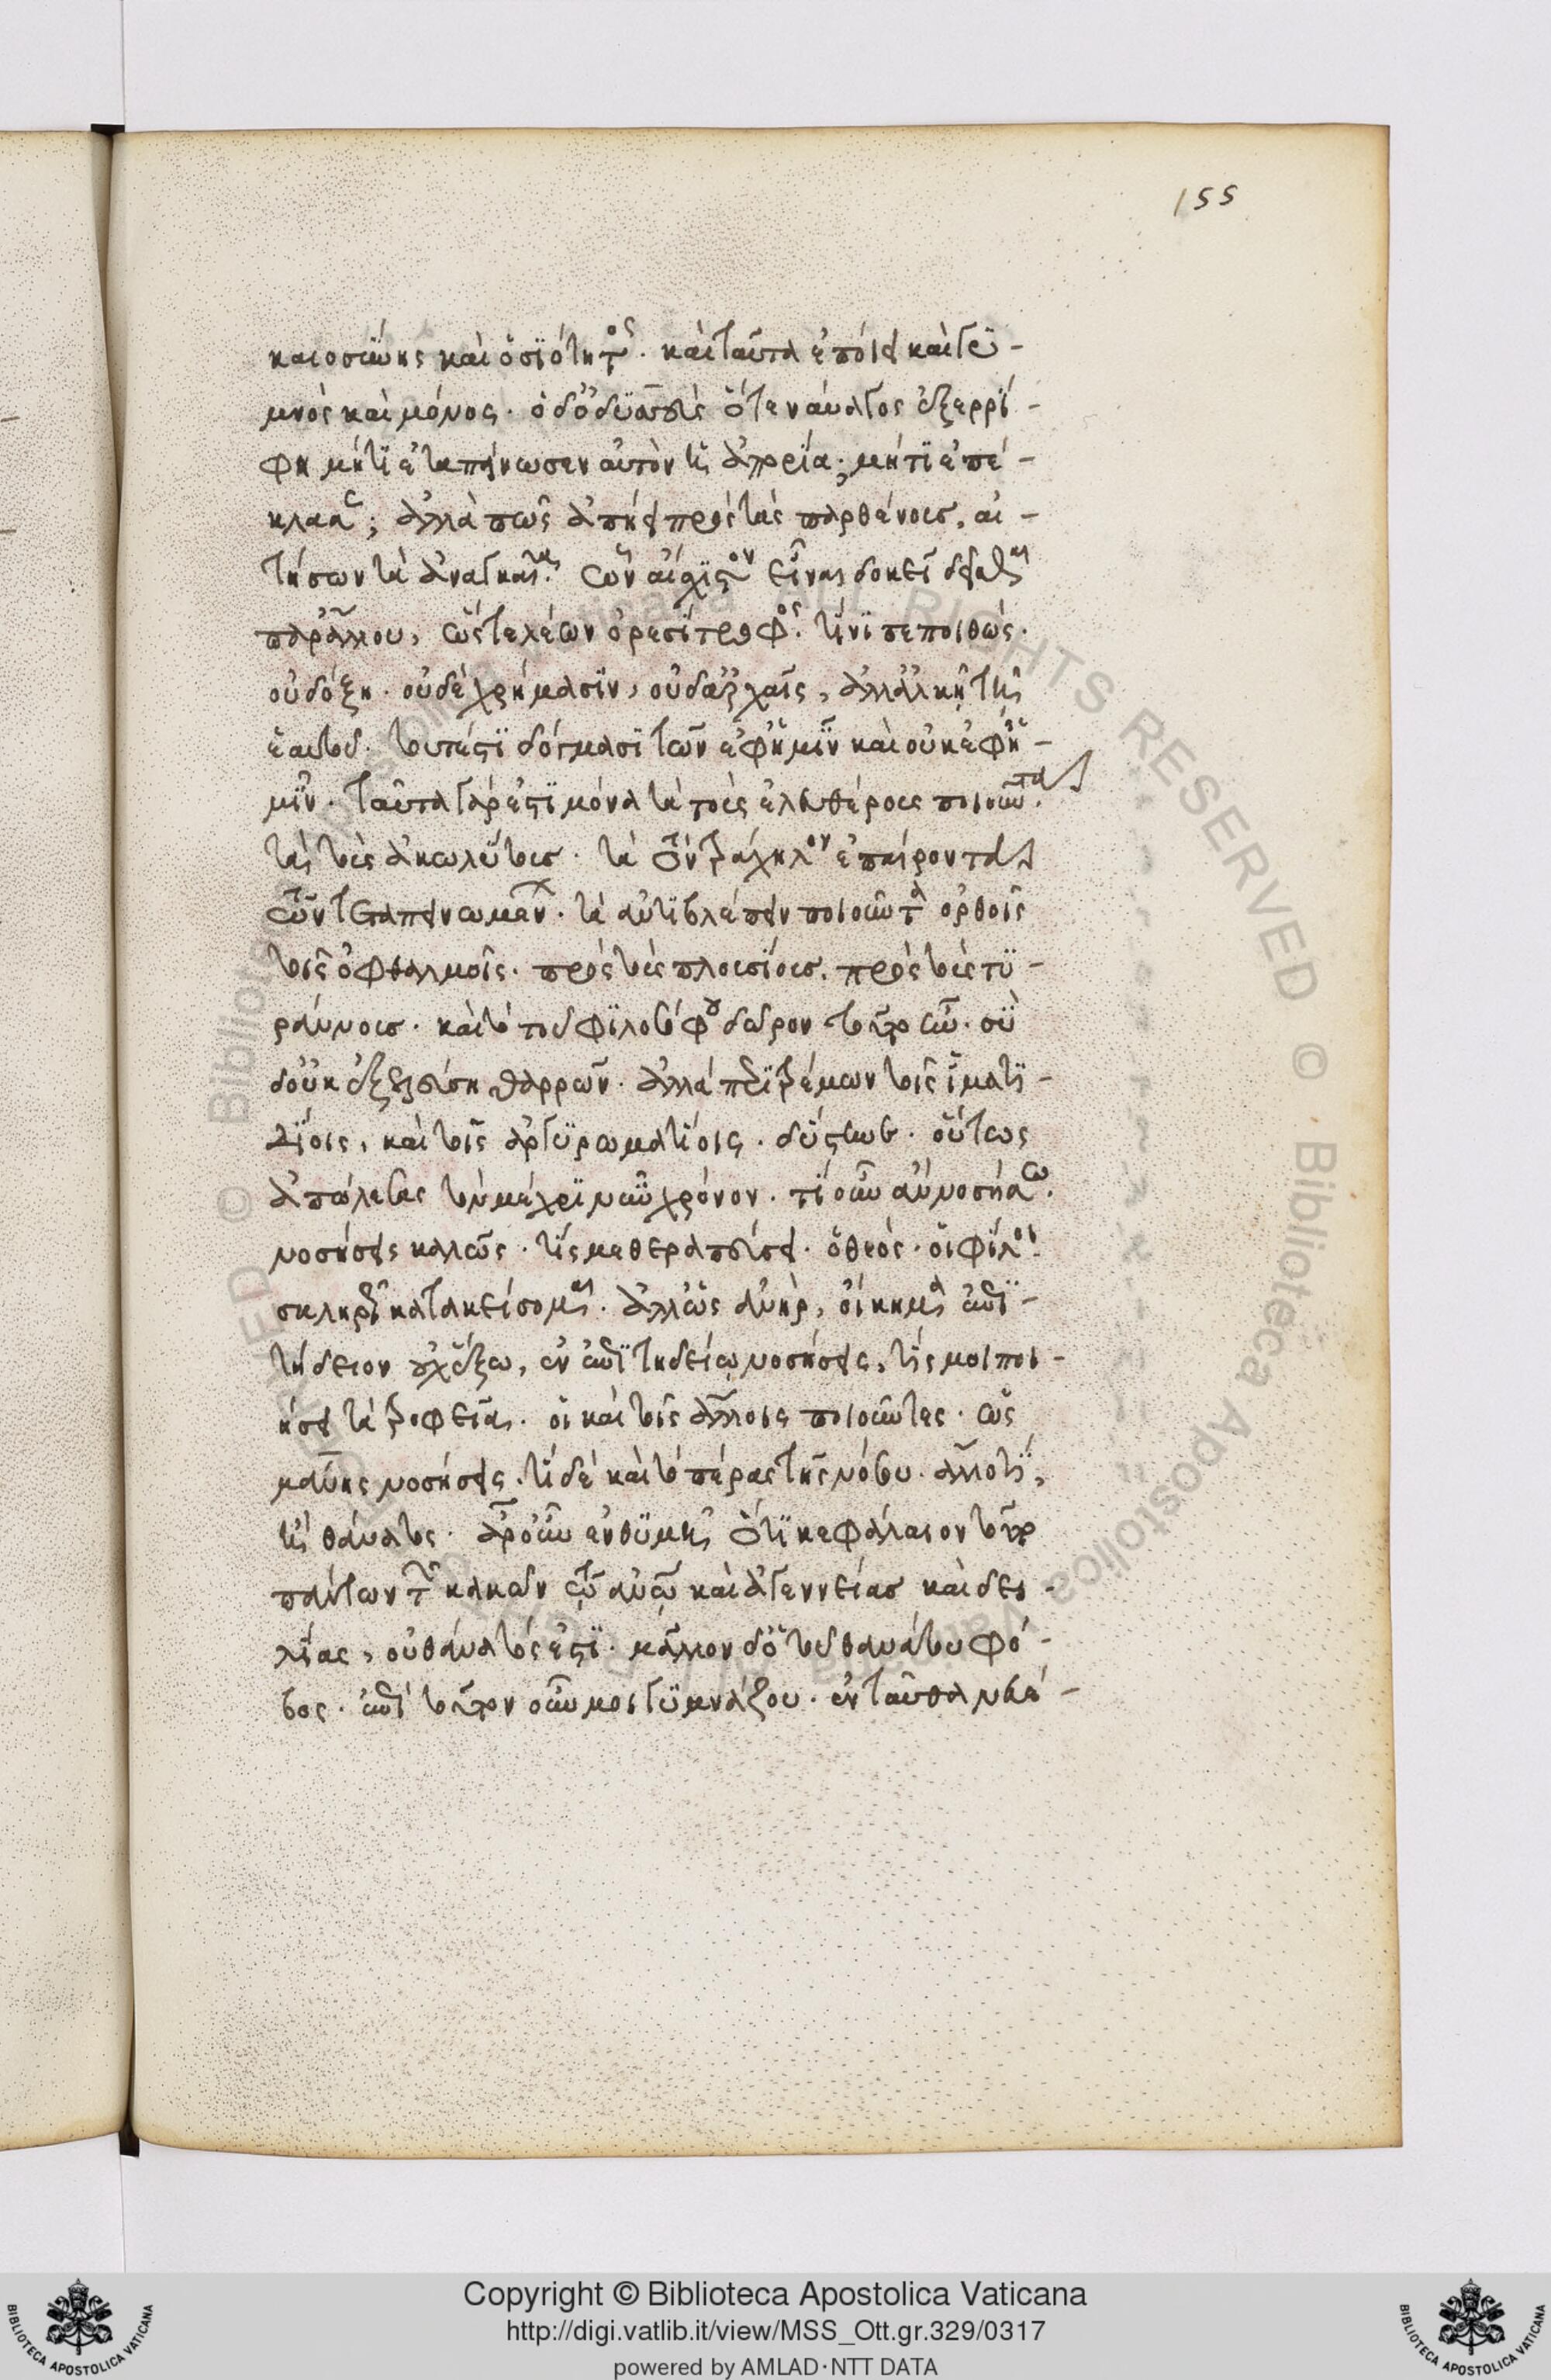 καιοσύνης καὶ ὁσιότητος. καὶ ταῦτα ἐποίει καὶ γυ-
μνὸς καὶ μόνος. ὁδοδυσσεὺς ὅτε ναυαγὸς ἐξερρί-
φη μήτι ἐταπείνωσεν αὐτὸν ἡ ἀπορία; μήτι ἐπέ-
κλασε; ἀλλὰ πῶς ἀπήει πρὸς τὰς παρθένους, αἰ-
τήσων τὰ ἀναγκαῖα. ὧν αἴσχιστον εἶναι δοκεῖ δεῖσθαι
παράλλου, ὥστε λέων ὀρεσίτροφος. τίνι πεποιθώς.
οὐ δόξη. οὐδὲ χρήμασιν, οὐδ' ἀρχαῖς, ἀλλ' ἀλκῇ τῇ
ἑαυτοῦ. τουτέστι δόγμασι τῶν ἐφ' ἡμῖν καὶ οὐκ ἐφ' ἡ-
μῖν. ταῦτα γάρ ἐστι μόνα τὰ τοὺς ἐλευθέρους ποιοῦντα.
τὰ τοὺς ἀκωλύτους. τὰ τὸν τράχηλον ἐπαίροντα
τῶν τεταπεινωμένων. τὰ ἀντιβλέπειν ποιοῦντα ὀρθοῖς
τοῖς ὀφθαλμοῖς. πρὸς τοὺς πλουσίους. πρὸς τοὺς τυ-
ράννους. καὶ τὸ τοῦ φιλοσόφου δῶρον τοῦτο ἦν. σὺ
δ' οὐκ ἐξελεύση θαρρῶν. ἀλλὰ περιτρέμων τοῖς ἱματι-
δίοις, καὶ τοῖς ἀργυρωματίοις. δύστηνε. οὕτως
ἀπώλεσας τὸν μέχρι νῦν χρόνον. τί οὖν ἂν νοσήσω.
νοσήσεις καλῶς. τίς με θεραπεύσει. ὁ θεός. οἱ φίλοι.
σκληρῶς κατακείσομαι. ἀλλ' ὡς ἀνήρ, οἴκημα ἐπι-
τήδειον οὐχ ἕξω, ἐν ἐπιτηδείῳ νοσήσεις, τίς μοι ποι-
ήσει τὰ τροφεῖα. οἱ καὶ τοῖς ἄλλοις ποιοῦντες. ὡς
μάνης νοσήσεις. τί δὲ καὶ τὸ πέρας τῆς νόσου. ἄλλο τι,
ἢ θάνατος. ἆρ' οὖν ἐνθυμῇ ὅτι κεφάλαιον τοῦτο
πάντων τῶν κακῶν τῷ ἀνῳ καὶ ἀγεννείας καὶ δει-
λίας, οὐ θάνατός ἐστι. μᾶλλον δ' ὁ τοῦ θανάτου φό-
βος. ἐπὶ τοῦτον οὖν μοι γυμνάζου. ἐνταῦθα νευέ-
155
Copyright © Biblioteca Apostolica Vaticana
http://digi.vatlib.it/view/MSS_Ott.gr.329/0317
powered by AMLAD·NTT DATA